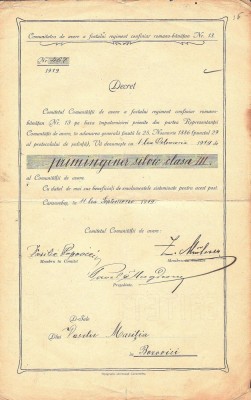 Comunitatea de avere a fostului regiment confiniar româno-bănățian Nr. 13
Nr.
1919
Decret
Comitetul Comunității de avere a fostului regiment confiniar româno-
bănățian Nr. 13 pe baza împuternicirei primite din partea Reprezentanței
Comunității de avere, în adunarea generală ținută la 25. Noemvrie 1886 (punctul 29
al protocolului de ședință), Vă denumește cu 1 lea 1919 de
suminginer silvic clasa III.
al Comunității de avere.
Cu datul de mai sus beneficiați de emolumentele sistemizate pentru acest post.
Caransebeș, în 11 lea 1919.
Comitetul Comunității de avere:
Vasilie Popovici
Membru în Comitet
Membru în Comitet
Președinte
D-Sale
Dlui Vasilie
în
Bozovici